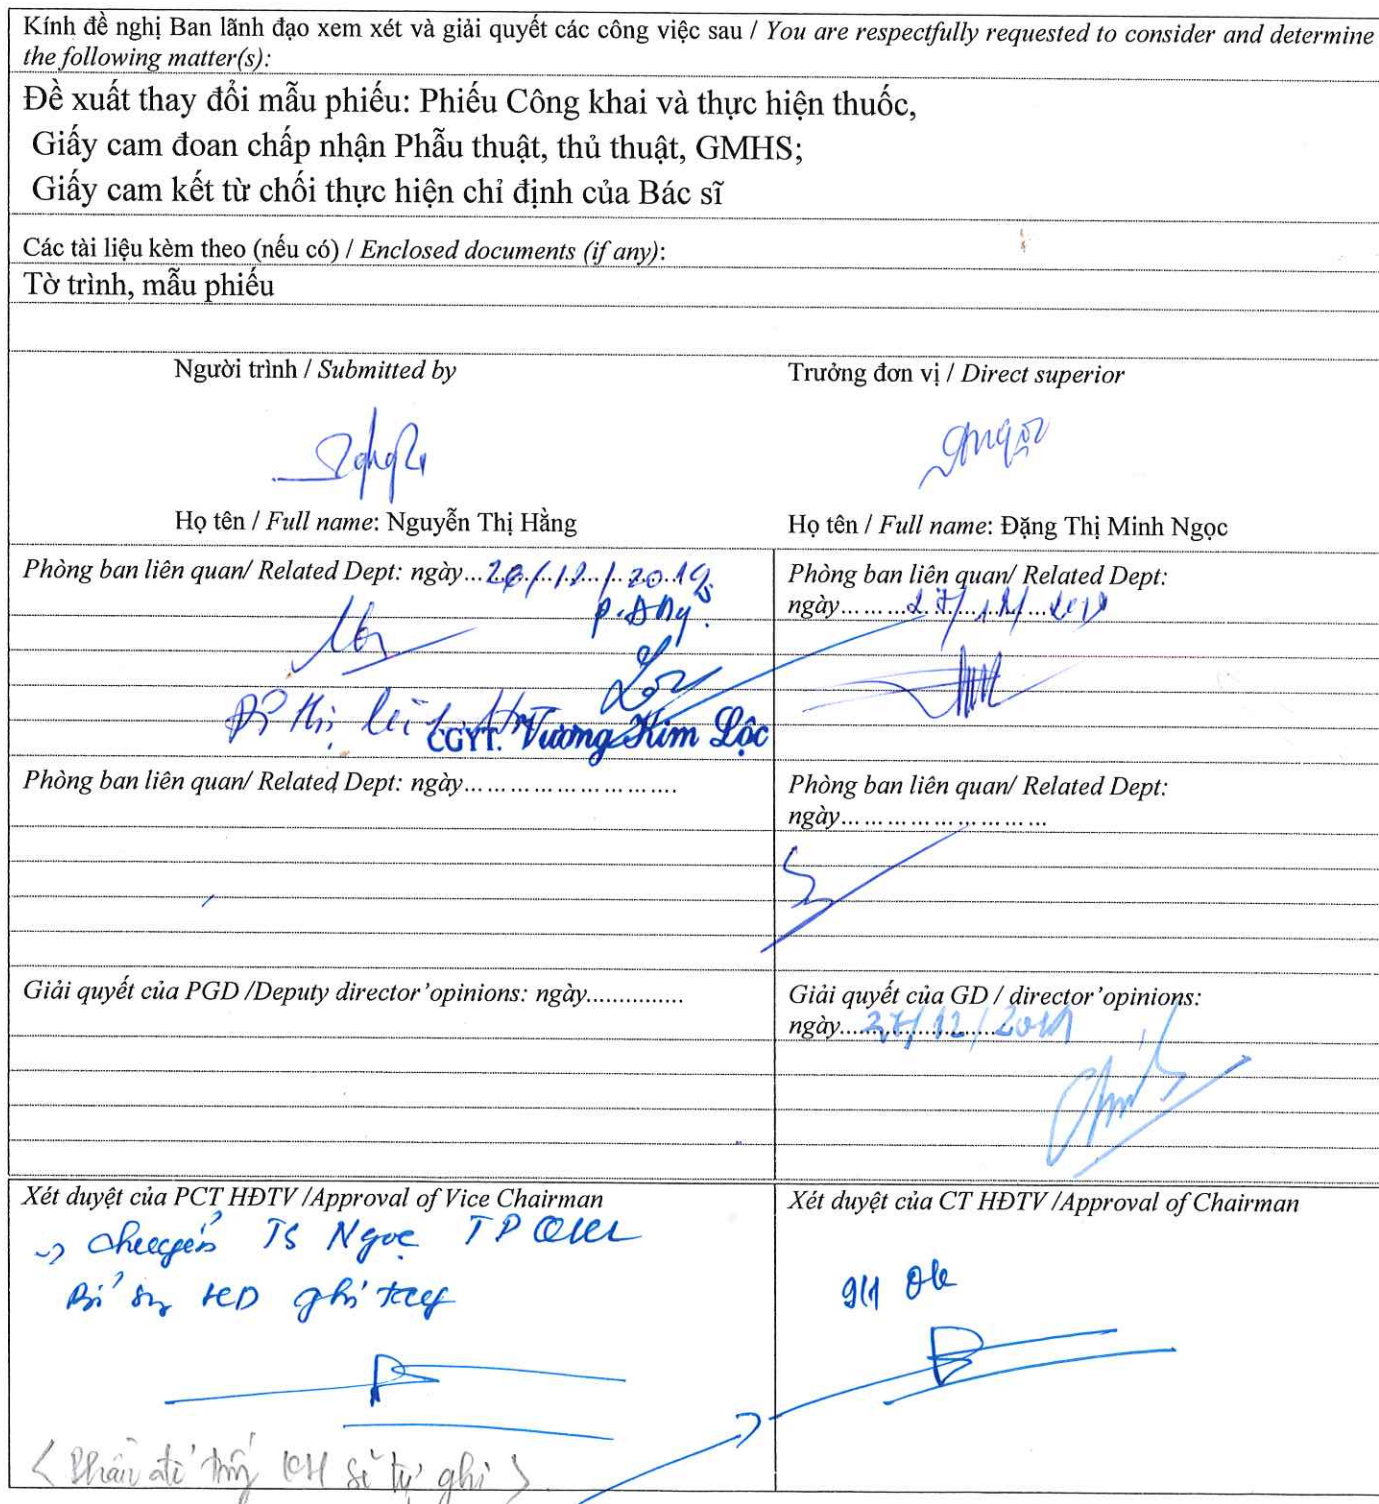 Kính đề nghị Ban lãnh đạo xem xét và giải quyết các công việc sau / You are respectfully requested to consider and determine
the following matter(s):
Đề xuất thay đổi mẫu phiếu: Phiếu Công khai và thực hiện thuốc,
Giấy cam đoan chấp nhận Phẫu thuật, thủ thuật, GMHS;
Giấy cam kết từ chối thực hiện chỉ định của Bác sĩ
Các tài liệu kèm theo (nếu có) / Enclosed documents (if any):
Tờ trình, mẫu phiếu
Người trình / Submitted by
Trưởng đơn vị / Direct superior
Họ tên / Full name: Nguyễn Thị Hằng
Họ tên / Full name: Đặng Thị Minh Ngọc
Phòng ban liên quan/ Related Dept: ngày...26/12/2019
Phòng ban liên quan/ Related Dept:
ngày.........27/12/2019
CGYT. Vương Kim Lộc
Phòng ban liên quan/ Related Dept: ngày........................
Phòng ban liên quan/ Related Dept:
ngày........................
Giải quyết của PGD /Deputy director'opinions: ngày...............
Giải quyết của GD / director'opinions:
ngày....27/12/2019
Xét duyệt của PCT HĐTV /Approval of Vice Chairman
Xét duyệt của CT HĐTV /Approval of Chairman
chuyển TS Ngọc TP
ghi tay
9/1 Ok
tự ghi >